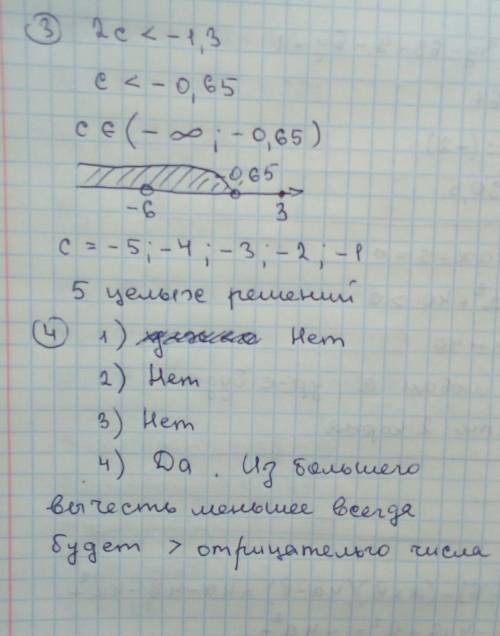 3 2c < -1,3
c < -0,65
c ∈ (-∞; -0,65)
-0,65
-6 3
c = -5; -4; -3; -2; -1
5 целых решений
4 1) Нет
2) Нет
3) Нет
4) Да. Из большего
вычесть меньшее всегда
будет > отрицательго числа